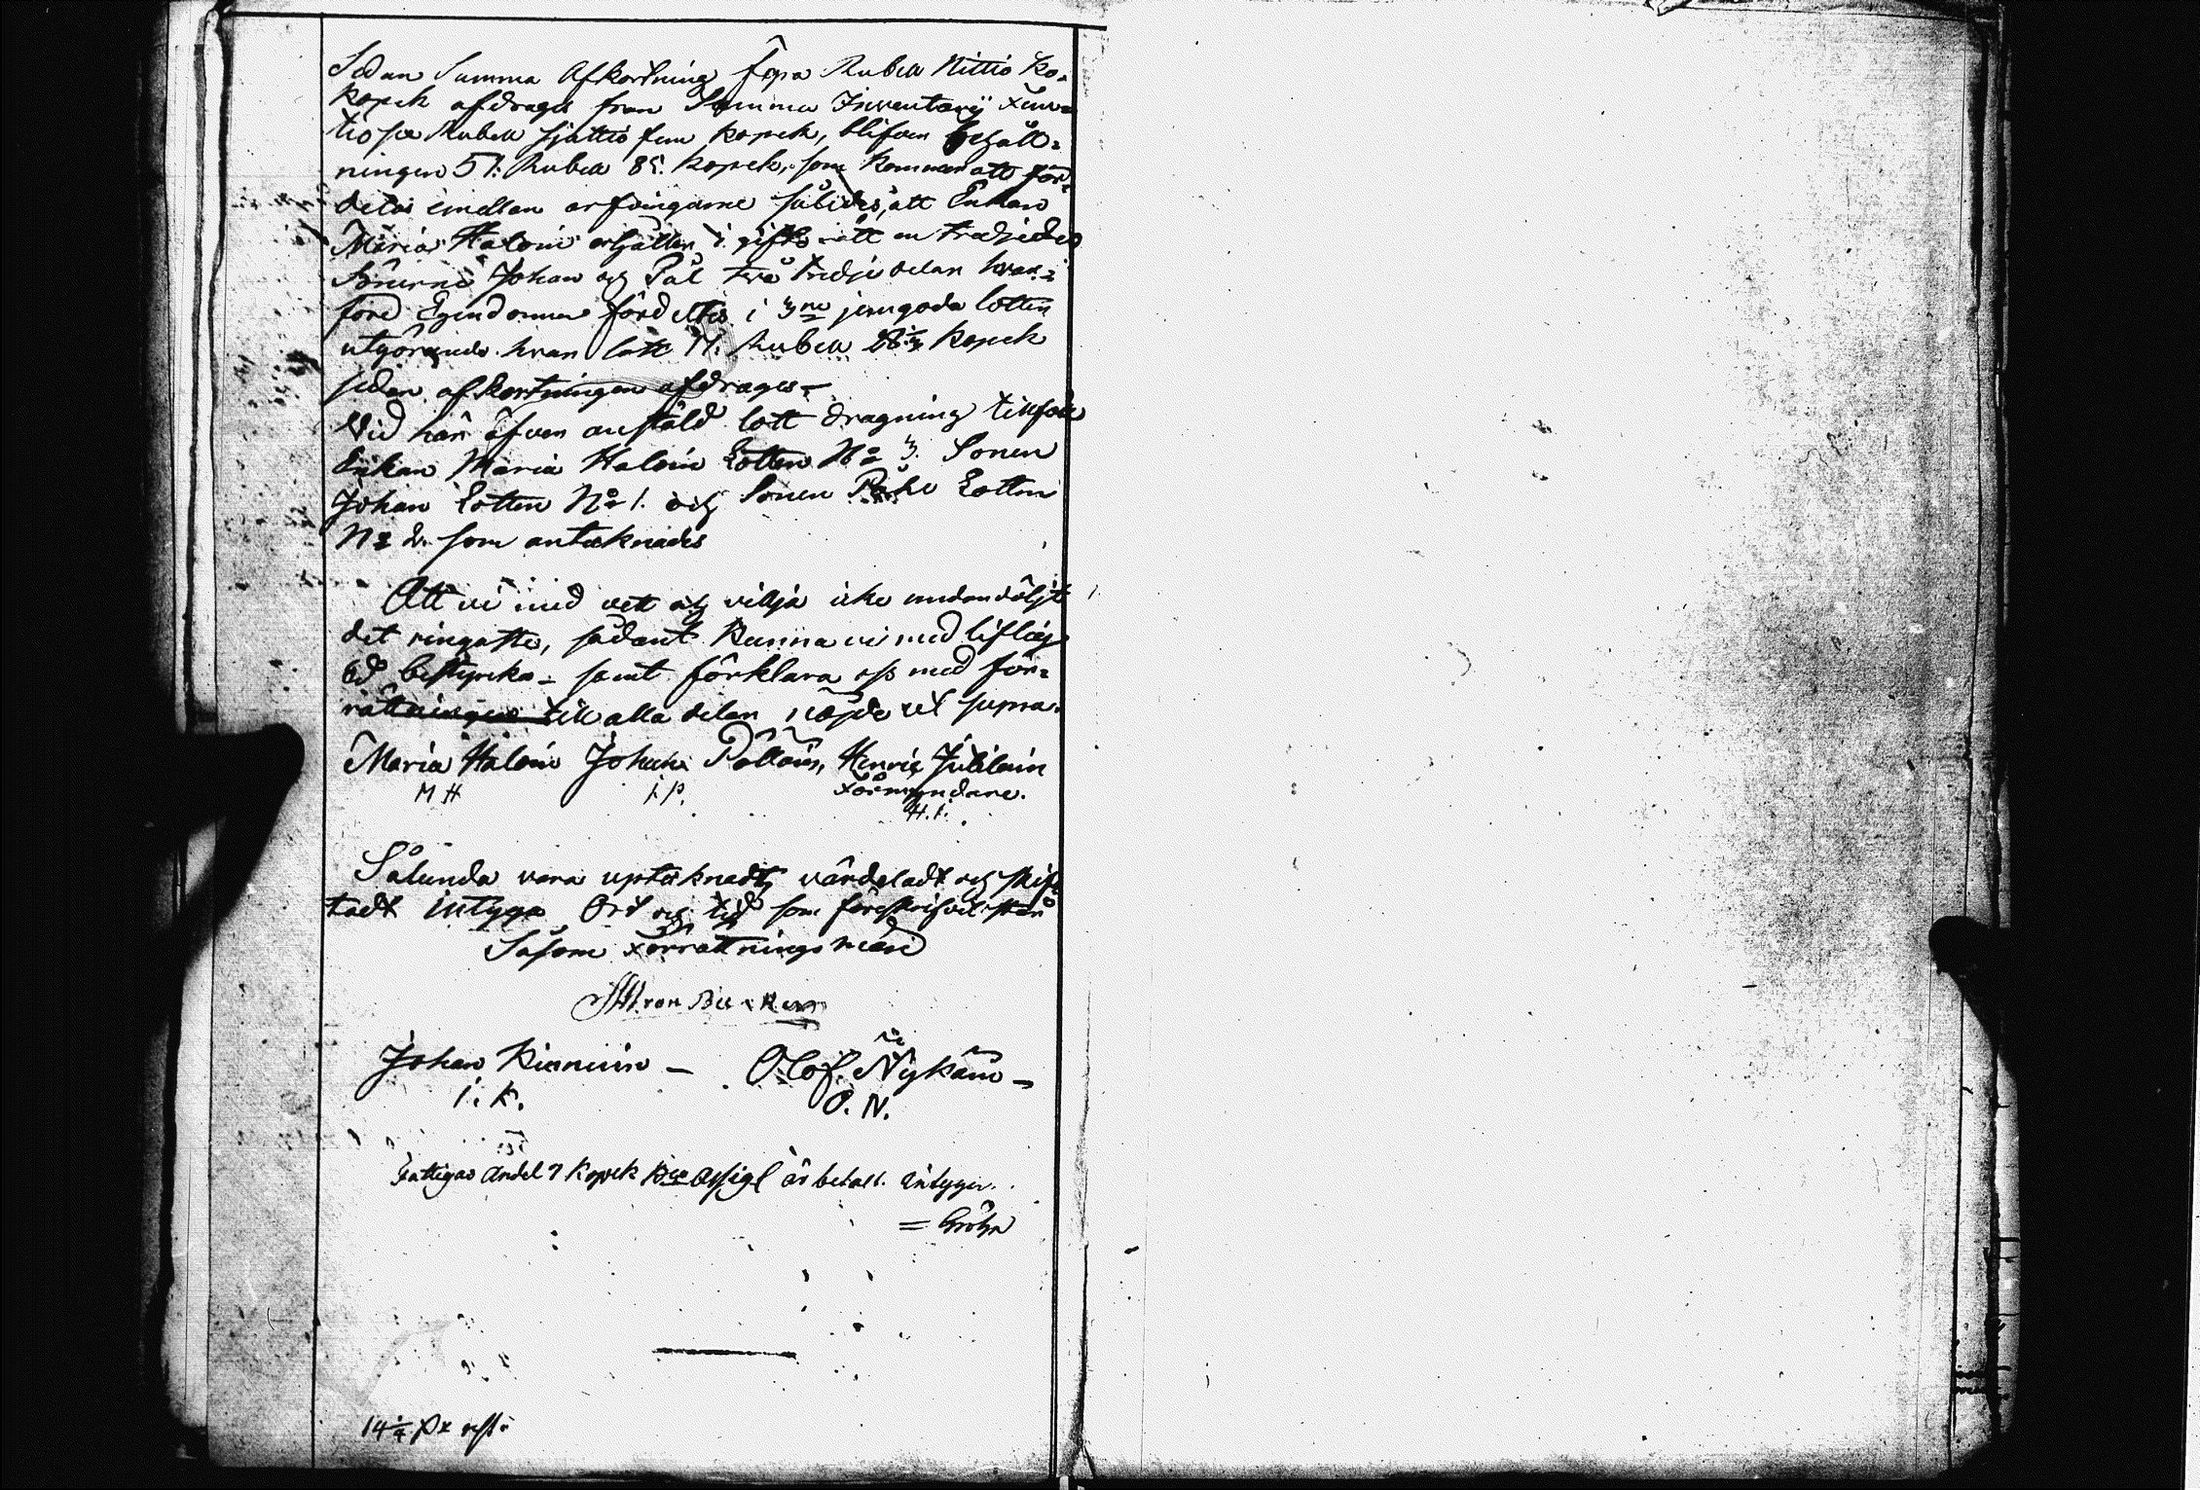 Sedan Summa Afkortning Rubel Nittio Ko-
kopek afdrages från Summa Inventarij Fem-
tiosex Rubel sjuttio fem kopek, blifver behåll-
ningen 51. Rubel 85. kopek, som kommer att för-
delas emellan arfvingarne således, att Enkan
Maria Haloin erhåller i giftorätt en tredjedel
Sönerne Johan och Pål två tredje delar hvar-
före Egendomen fördeltes i 3ne jemgoda lotter
utgörande hvar lott 17. Rubel 28 1/3 kopek
sedan afkortningen afdrages.
Vid här öfver anstäld lott dragning tillföll
Enkan Maria Haloin Lotten No 3. Sonen
Johan Lotten No 1. och Sonen Påhl Lotten
No 2. som antecknades
Att vi med vett och vilja icke undandöljt
det ringaste, sådant kunna vi med liflig
Ed bestyrka - samt förklara oss med för-
rättningen till alla delar nöjde ut supra.
Maria Haloin Johan Henric
M H I.P. Förmyndare.
H.I.
Sålunda vara uptecknadt, värderadt och skif-
tadt intyga Ort och tid som föreskrifvet står
Såsom Förrättningsmän
von
Johan Kinnuin - Olof Nykäin -
I. K. O. N.
Fattigas Andel 7 kopek är betalt. intygar.
= Gröhn
14 1/4